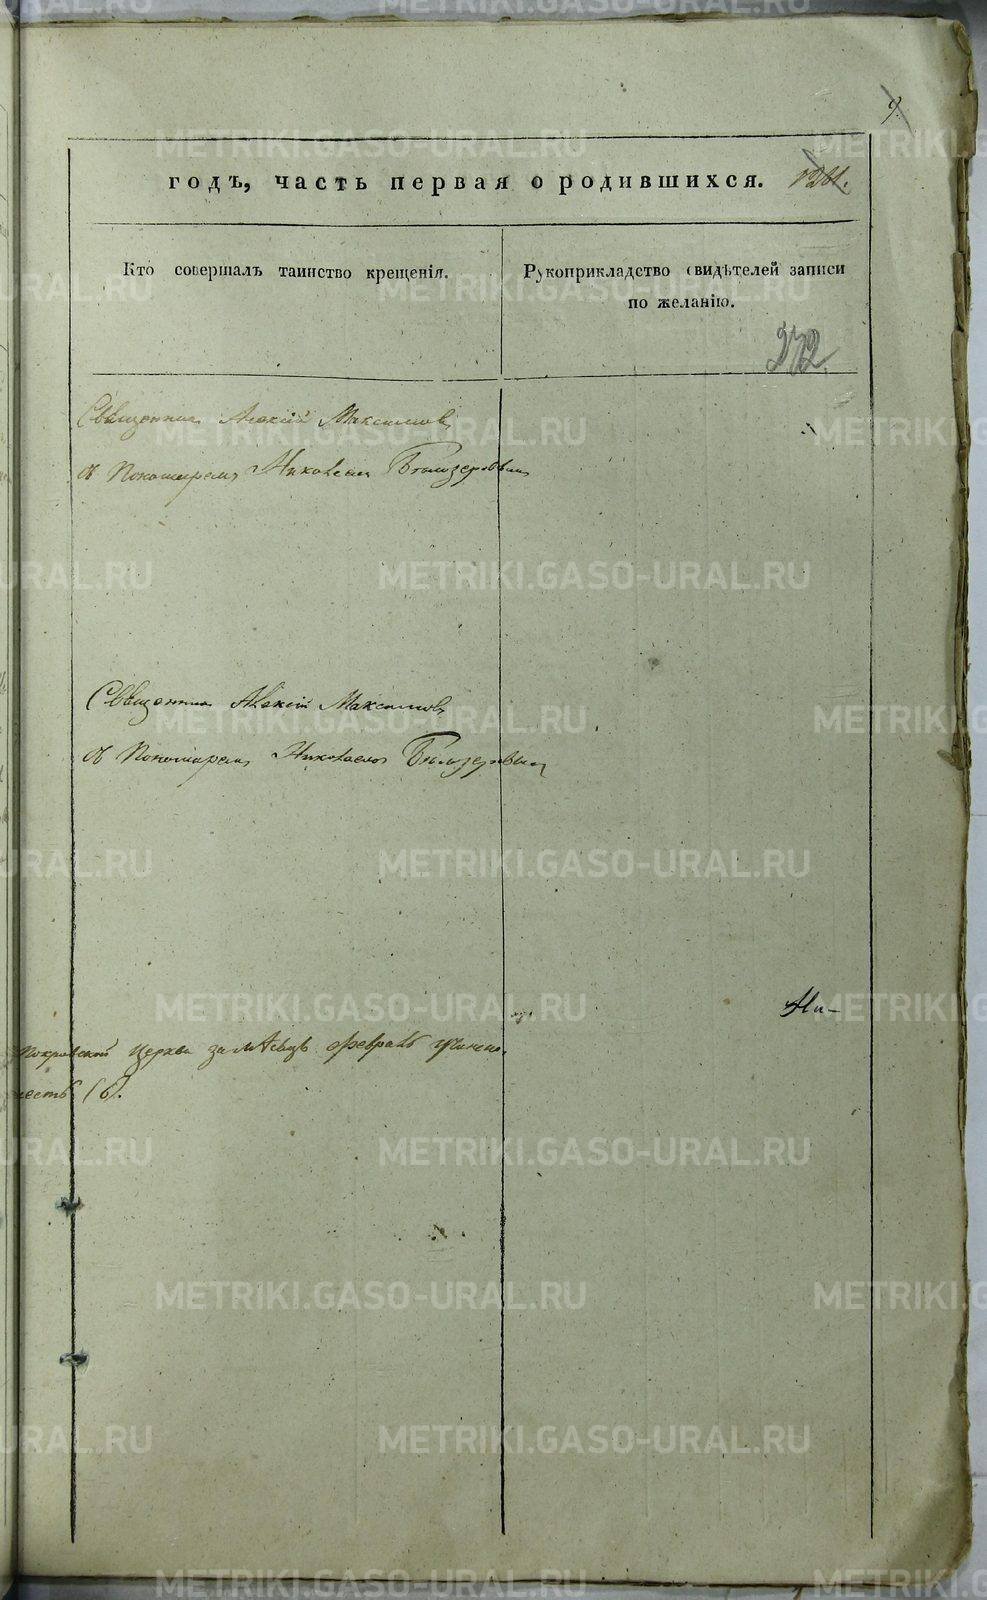 9.
годъ, часть первая о родившихся.
Кто совершалъ таинство крещенія.
Рукоприкладство свидѣтелей записи
по желанію.
272.
Священник Алексій Максимовъ
съ Пономаремъ Николаем Бѣлозеровым
Священник Алексій Максимовъ
съ Пономаремъ Николаемъ Бѣлозеровым
Ни-
Покровской Церкви за мѣсяцъ Февраль
(6).
METRIKI.GASO-URAL.RU